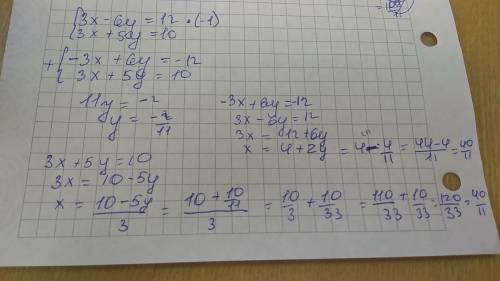 {3x - 6y = 12 · (-1)
{3x + 5y = 10
+ {-3x + 6y = -12
{3x + 5y = 10
11y = -2
y = -2/11
-3x + 6y = -12
3x - 6y = 12
3x = 12 + 6y
x = 4 + 2y = 4 - 4/11 = (44 - 4)/11 = 40/11
3x + 5y = 10
3x = 10 - 5y
x = (10 - 5y)/3 = (10 + 10/11)/3 = 10/3 + 10/33 = 110/33 + 10/33 = 120/33 = 40/11